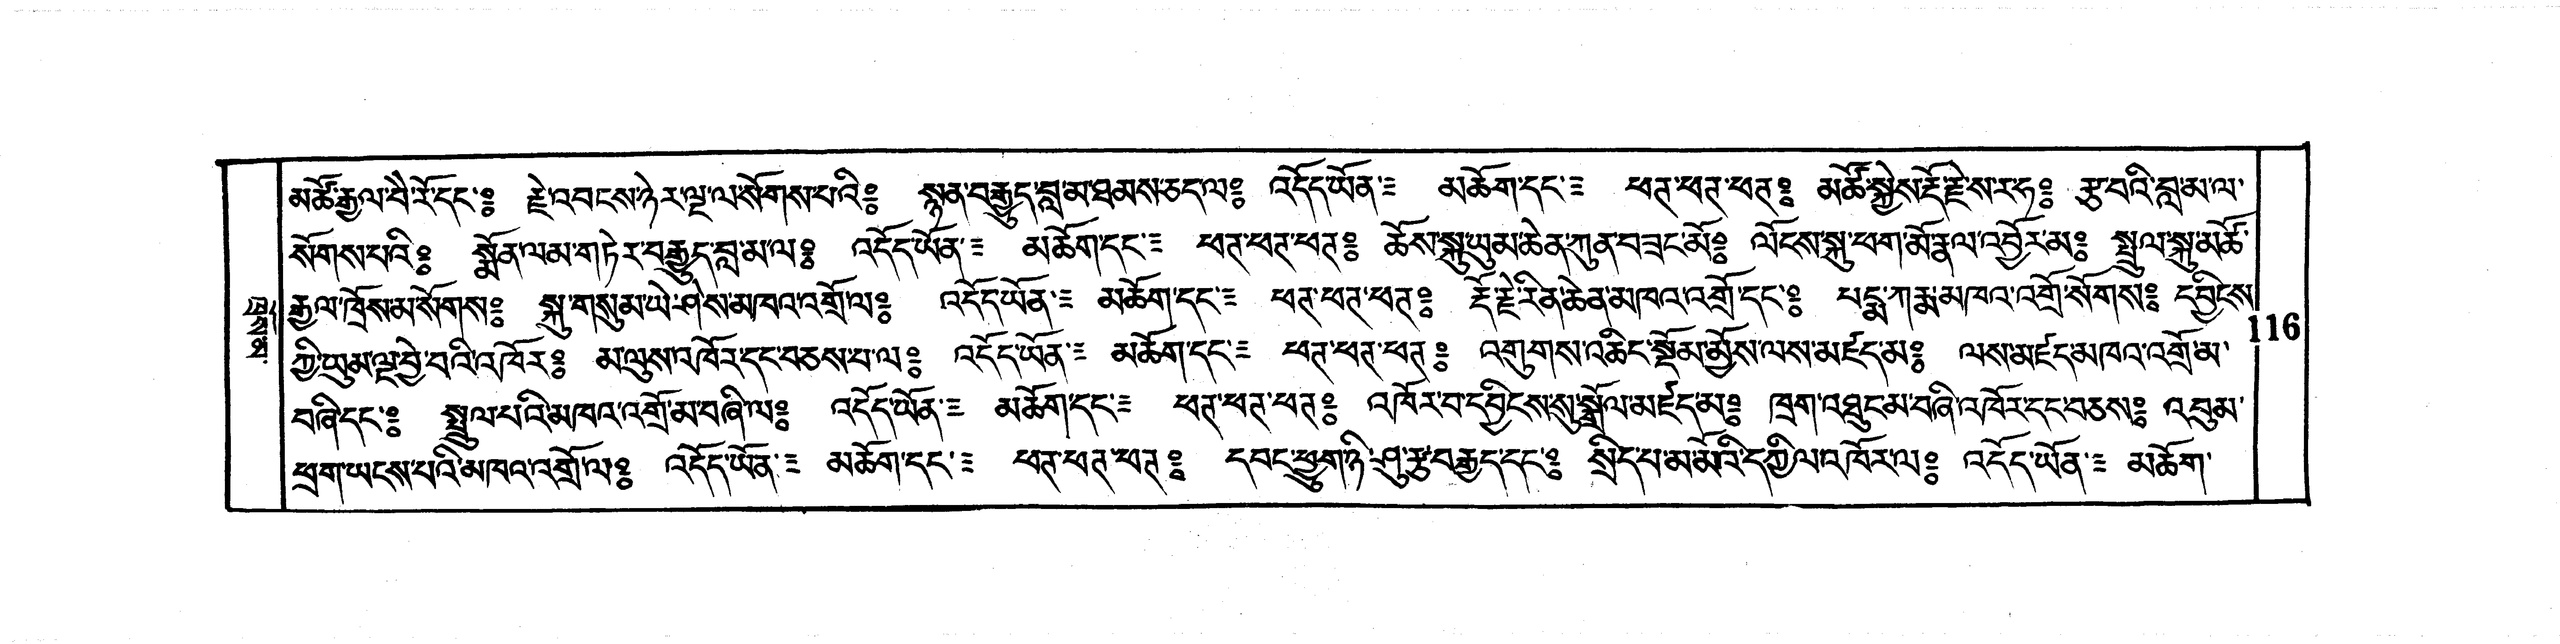 མཚོ་རྒྱལ་བཻ་རོ་དང་༔ རྗེ་འབངས་ཉེར་ལྔ་ལ་སོགས་པའི༔ སྙན་བརྒྱུད་བླ་མ་ཐམས་ཅད་ལ༔ འདོད་ཡོན་༴ མཆོག་དང་༴ ཕཊ་ཕཊ་ཕཊ༔ མཚོ་སྐྱེས་རྡོ་རྗེ་ས་ར་ཧ༔ རྩ་བའི་བླ་མ་ལ་
སོགས་པའི༔ སྨོན་ལམ་གཏེར་བརྒྱུད་བླ་མ་ལ༔ འདོད་ཡོན་༴ མཆོག་དང་༴ ཕཊ་ཕཊ་ཕཊ༔ ཆོས་སྐུ་ཡུམ་ཆེན་ཀུན་བཟང་མོ༔ ལོངས་སྐུ་ཕག་མོ་རྣལ་འབྱོར་མ༔ སྤྲུལ་སྐུ་མཚོ་
རྒྱལ་ཁྲོས་མ་སོགས༔ སྐུ་གསུམ་ཡེ་ཤེས་མཁའ་འགྲོ་ལ༔ འདོད་ཡོན་༴ མཆོག་དང་༴ ཕཊ་ཕཊ་ཕཊ༔ རྡོ་རྗེ་རིན་ཆེན་མཁའ་འགྲོ་དང་༔ པདྨ་ཀརྨ་མཁའ་འགྲོ་སོགས༔ དབྱིངས་
ཀྱི་ཡུམ་ལྔ་བྱེ་བའི་འཁོར༔ མ་ལུས་འཁོར་དང་བཅས་པ་ལ༔ འདོད་ཡོན་༴ མཆོག་དང་༴ ཕཊ་ཕཊ་ཕཊ༔ འགུགས་འཆིང་སྡོམ་མྱོས་ལས་མཛད་མ༔ ལས་མཛད་མཁའ་འགྲོ་མ་
བཞི་དང་༔ སྤྲུལ་པའི་མཁའ་འགྲོ་མ་བཞི་ལ༔ འདོད་ཡོན་༴ མཆོག་དང་༴ ཕཊ་ཕཊ་ཕཊ༔ འཁོར་བ་དབྱིངས་སུ་སྒྲོལ་མཛད་མ༔ ཁྲག་འཐུང་མ་བཞི་འཁོར་དང་བཅས༔ འབུམ་
ཕྲག་ཡངས་པའི་མཁའ་འགྲོ་ལ༔ འདོད་ཡོན་༴ མཆོག་དང་༴ ཕཊ་ཕཊ་ཕཊ༔ དབང་ཕྱུག་ཉི་ཤུ་རྩ་བརྒྱད་དང་༔ སྲིད་པ་མ་མོའི་དཀྱིལ་འཁོར་ལ༔ འདོད་ཡོན་༴ མཆོག་
116